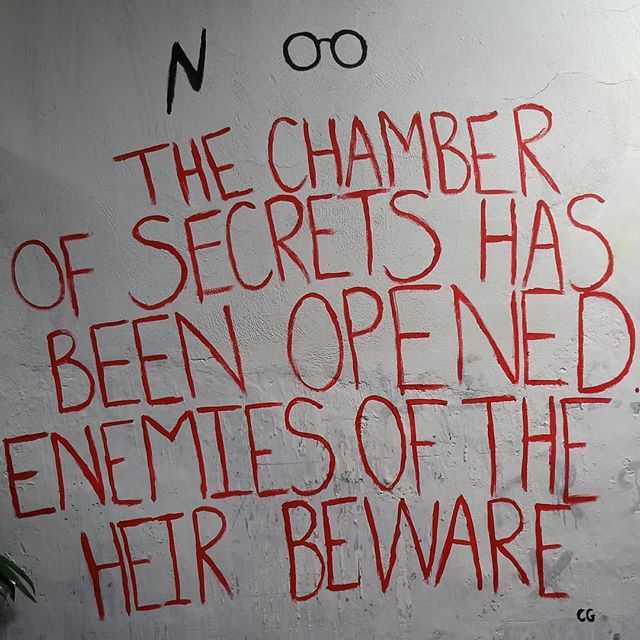 THE CHAMBER
OF SECRETS HAS
BEEN OPENED
ENEMIES OF THE
HEIR BEWARE
CG